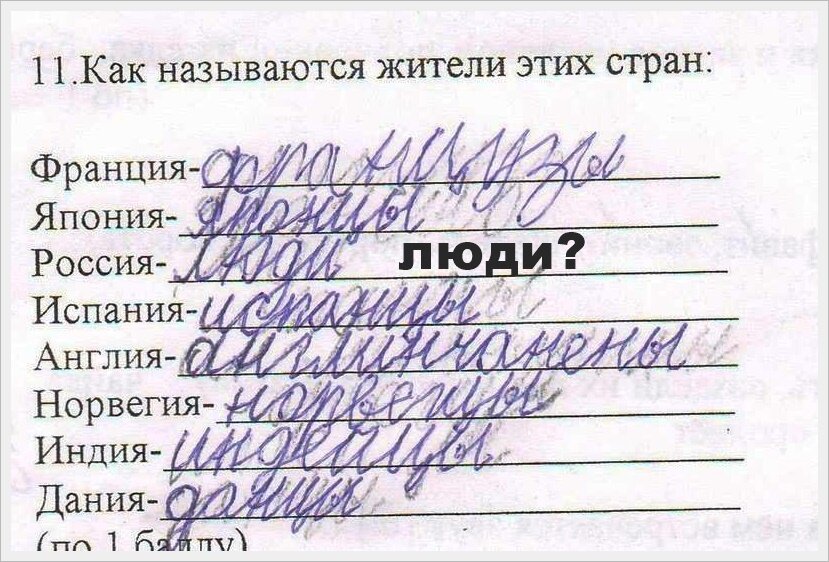 11.Как называются жители этих стран:
Франция- французы
Япония- японцы
Россия- люди люди?
Испания- испанцы
Англия- англинчанены
Норвегия- норвегцы
Индия- индейцы
Дания- данцы
(по 1 баллу)